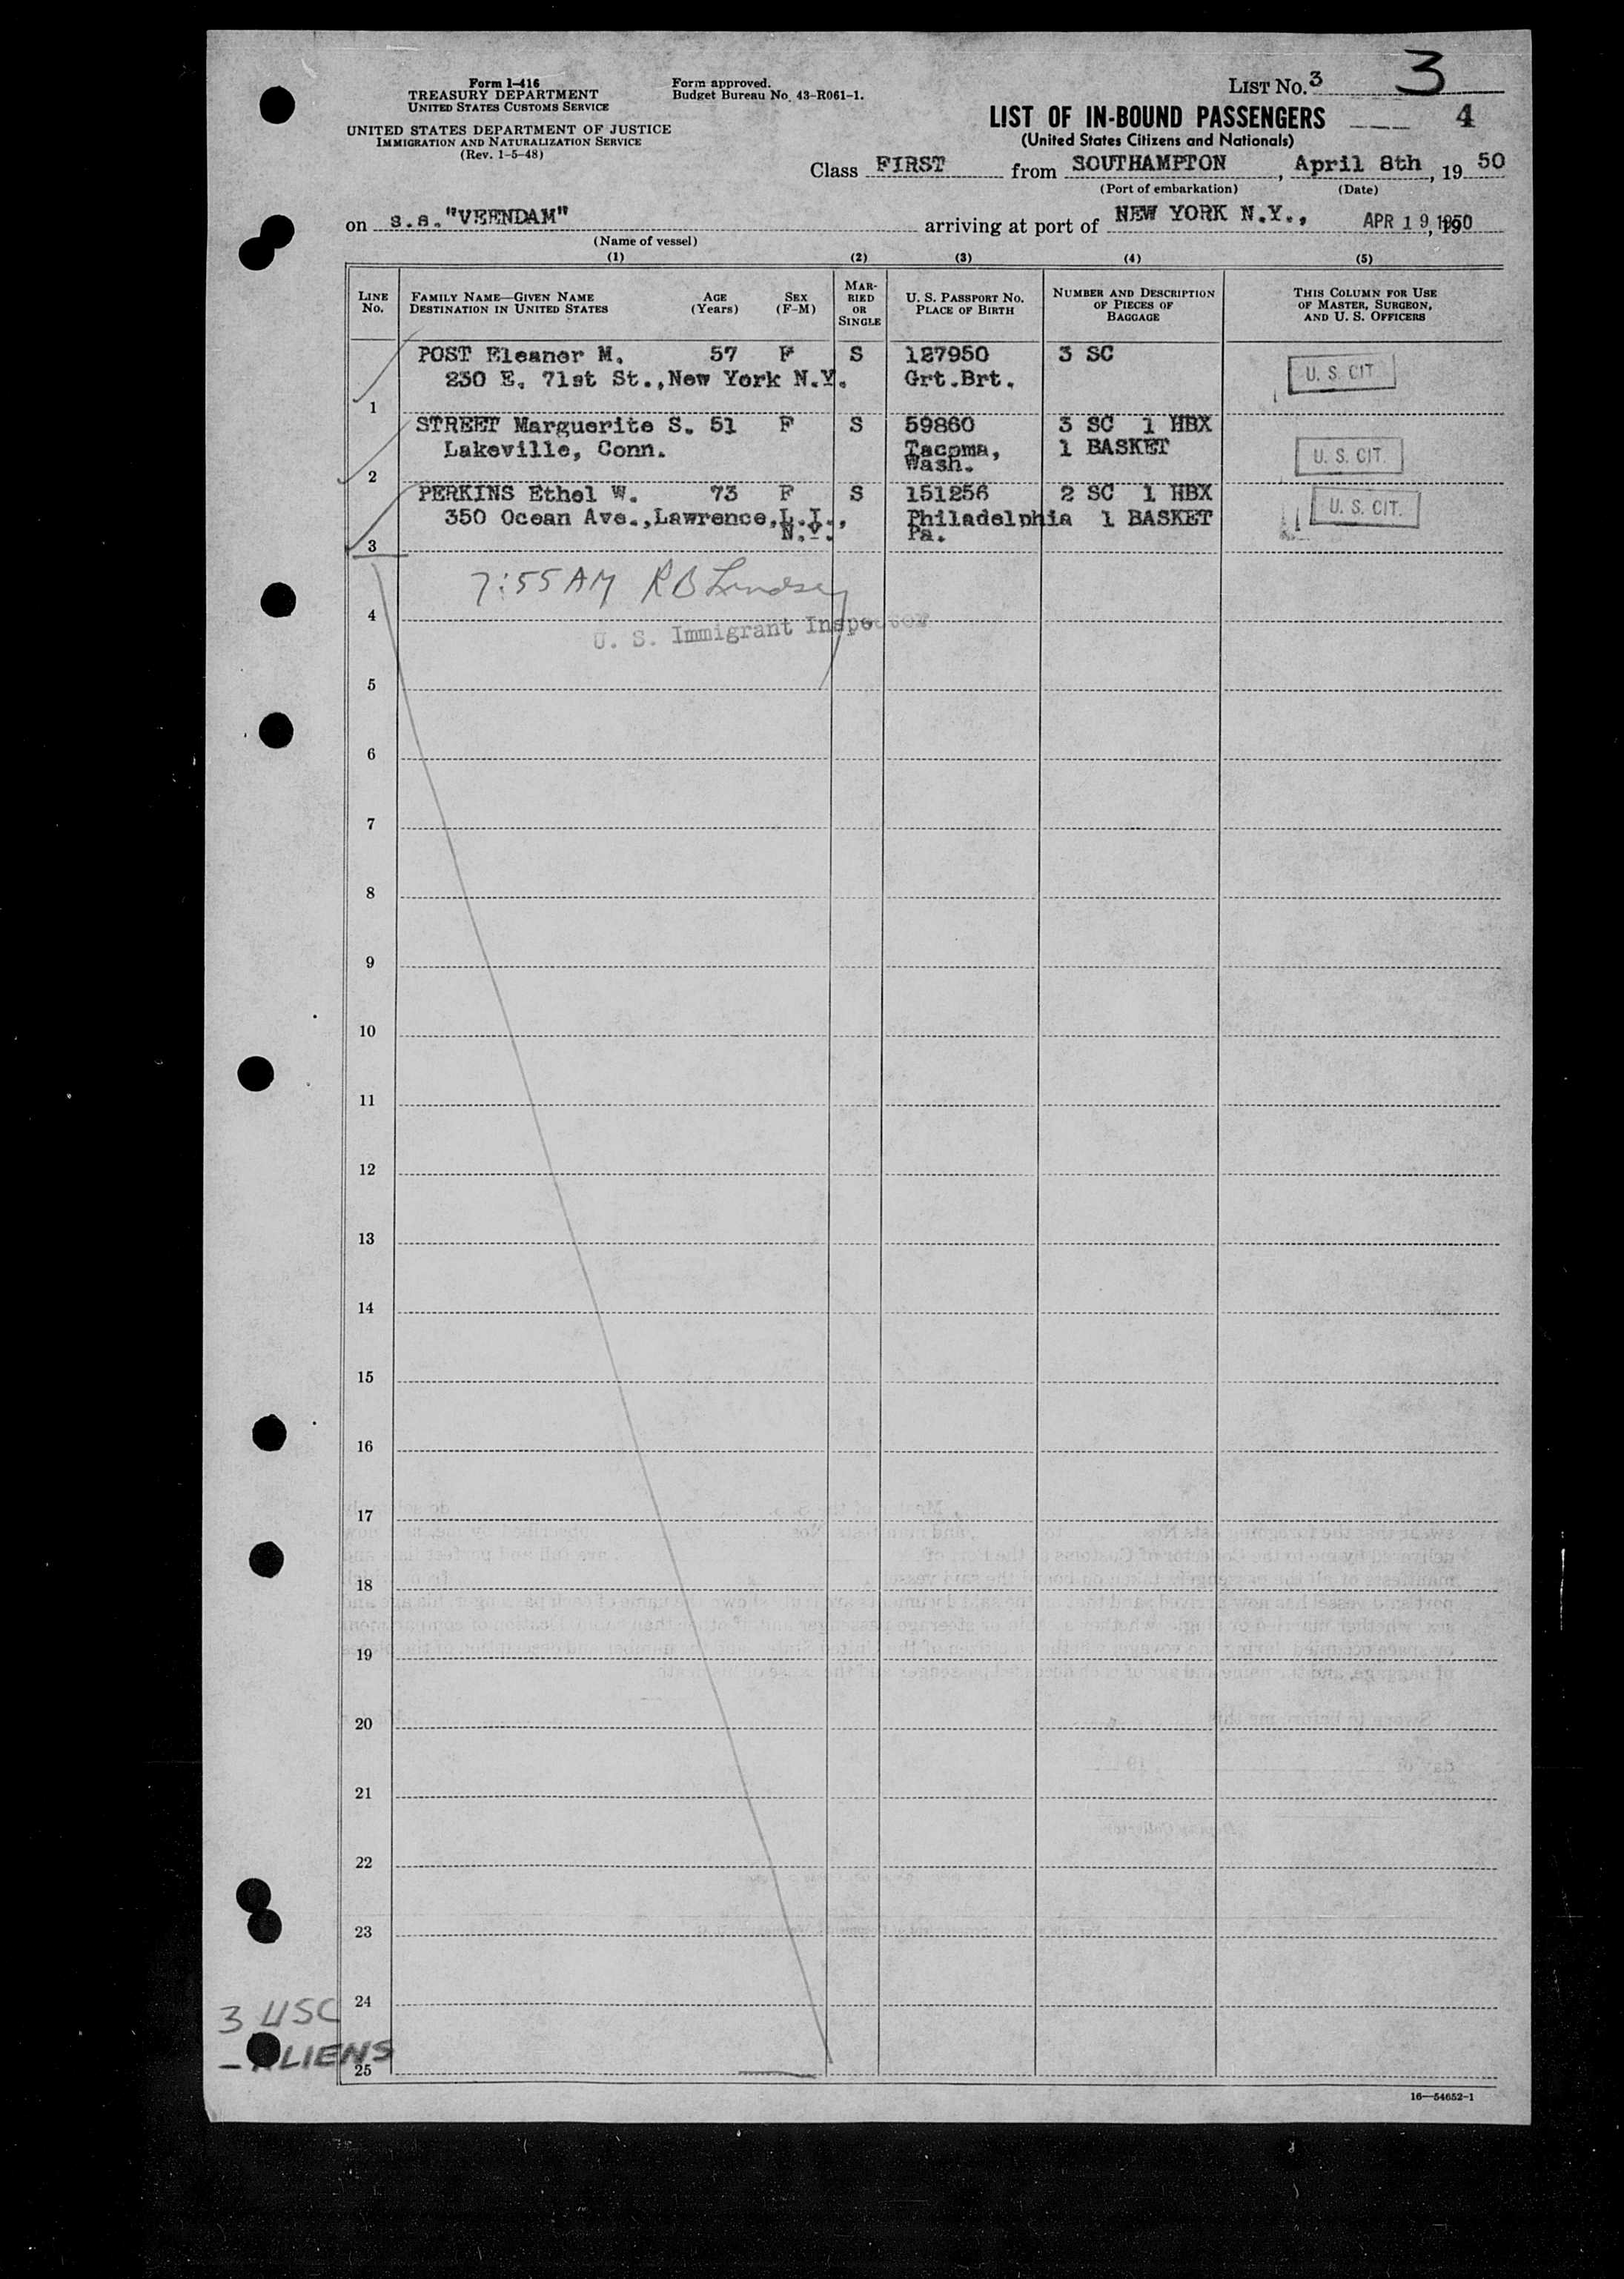 Form I-416
TREASURY DEPARTMENT
UNITED STATES CUSTOMS SERVICE
UNITED STATES DEPARTMENT OF JUSTICE
IMMIGRATION AND NATURALIZATION SERVICE
(Rev. 1-5-48)
Form approved.
Budget Bureau No. 43-R061-1.
LIST NO. 3 3
LIST OF IN-BOUND PASSENGERS 4
(United States Citizens and Nationals)
Class FIRST from SOUTHAMPTON, April 8th, 19 50
(Port of embarkation) (Date)
on s.s. "VEENDAM" arriving at port of NEW YORK N.Y., APR 19 1950, 19
(Name of vessel)
(1) (2) (3) (4) (5)
LINE NO.
FAMILY NAME—GIVEN NAME
DESTINATION IN UNITED STATES
AGE (Years)
SEX (F-M)
MARRIED OR SINGLE
U. S. PASSPORT NO.
PLACE OF BIRTH
NUMBER AND DESCRIPTION OF PIECES OF BAGGAGE
THIS COLUMN FOR USE OF MASTER, SURGEON, AND U. S. OFFICERS
POST Eleanor M. 57 F S 127950 3 SC
230 E. 71st St., New York N.Y. Grt.Brt. U. S. CIT
1
STREET Marguerite S. 51 F S 59860 3 SC 1 HBX
Lakeville, Conn. Tacoma, 1 BASKET U. S. CIT.
Wash.
2
PERKINS Ethel W. 73 F S 151256 2 SC 1 HBX
350 Ocean Ave., Lawrence, L.I., Philadelphia 1 BASKET U. S. CIT.
N.Y. Pa.
3
7:55 AM R B Lindsey
4
U. S. Immigrant Inspector
5
6
7
8
9
10
11
12
13
14
15
16
17
18
19
20
21
22
23
24
3 USC
- ALIENS
25
16—54652-1